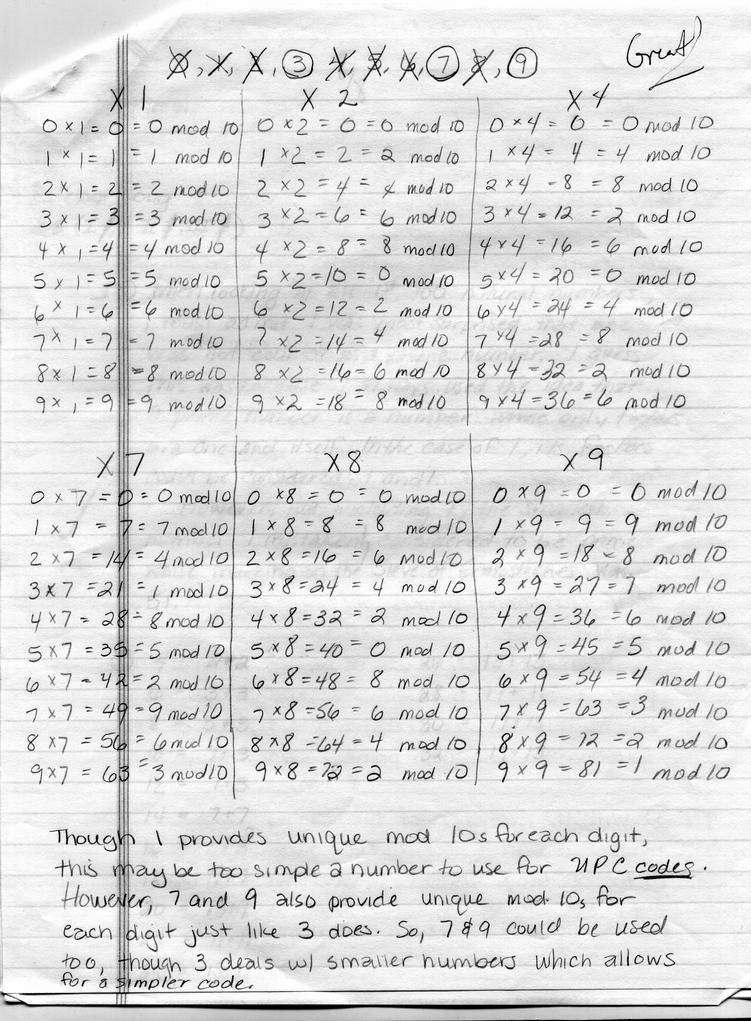 0, 1, 2, 3, 4, 5, 6, 7, 8, 9
Great!
X 1
0 x 1 = 0 = 0 mod 10
1 x 1 = 1 = 1 mod 10
2 x 1 = 2 = 2 mod 10
3 x 1 = 3 = 3 mod 10
4 x 1 = 4 = 4 mod 10
5 x 1 = 5 = 5 mod 10
6 x 1 = 6 = 6 mod 10
7 x 1 = 7 = 7 mod 10
8 x 1 = 8 = 8 mod 10
9 x 1 = 9 = 9 mod 10
X 2
0 x 2 = 0 = 0 mod 10
1 x 2 = 2 = 2 mod 10
2 x 2 = 4 = 4 mod 10
3 x 2 = 6 = 6 mod 10
4 x 2 = 8 = 8 mod 10
5 x 2 = 10 = 0 mod 10
6 x 2 = 12 = 2 mod 10
7 x 2 = 14 = 4 mod 10
8 x 2 = 16 = 6 mod 10
9 x 2 = 18 = 8 mod 10
X 4
0 x 4 = 0 = 0 mod 10
1 x 4 = 4 = 4 mod 10
2 x 4 = 8 = 8 mod 10
3 x 4 = 12 = 2 mod 10
4 x 4 = 16 = 6 mod 10
5 x 4 = 20 = 0 mod 10
6 x 4 = 24 = 4 mod 10
7 x 4 = 28 = 8 mod 10
8 x 4 = 32 = 2 mod 10
9 x 4 = 36 = 6 mod 10
X 7
0 x 7 = 0 = 0 mod 10
1 x 7 = 7 = 7 mod 10
2 x 7 = 14 = 4 mod 10
3 x 7 = 21 = 1 mod 10
4 x 7 = 28 = 8 mod 10
5 x 7 = 35 = 5 mod 10
6 x 7 = 42 = 2 mod 10
7 x 7 = 49 = 9 mod 10
8 x 7 = 56 = 6 mod 10
9 x 7 = 63 = 3 mod 10
X 8
0 x 8 = 0 = 0 mod 10
1 x 8 = 8 = 8 mod 10
2 x 8 = 16 = 6 mod 10
3 x 8 = 24 = 4 mod 10
4 x 8 = 32 = 2 mod 10
5 x 8 = 40 = 0 mod 10
6 x 8 = 48 = 8 mod 10
7 x 8 = 56 = 6 mod 10
8 x 8 = 64 = 4 mod 10
9 x 8 = 72 = 2 mod 10
X 9
0 x 9 = 0 = 0 mod 10
1 x 9 = 9 = 9 mod 10
2 x 9 = 18 = 8 mod 10
3 x 9 = 27 = 7 mod 10
4 x 9 = 36 = 6 mod 10
5 x 9 = 45 = 5 mod 10
6 x 9 = 54 = 4 mod 10
7 x 9 = 63 = 3 mod 10
8 x 9 = 72 = 2 mod 10
9 x 9 = 81 = 1 mod 10
Though 1 provides unique mod 10s for each digit,
this may be too simple a number to use for UPC codes.
However, 7 and 9 also provide unique mod 10s for
each digit just like 3 does. So, 7 & 9 could be used
too, though 3 deals w/ smaller numbers which allows
for a simpler code.